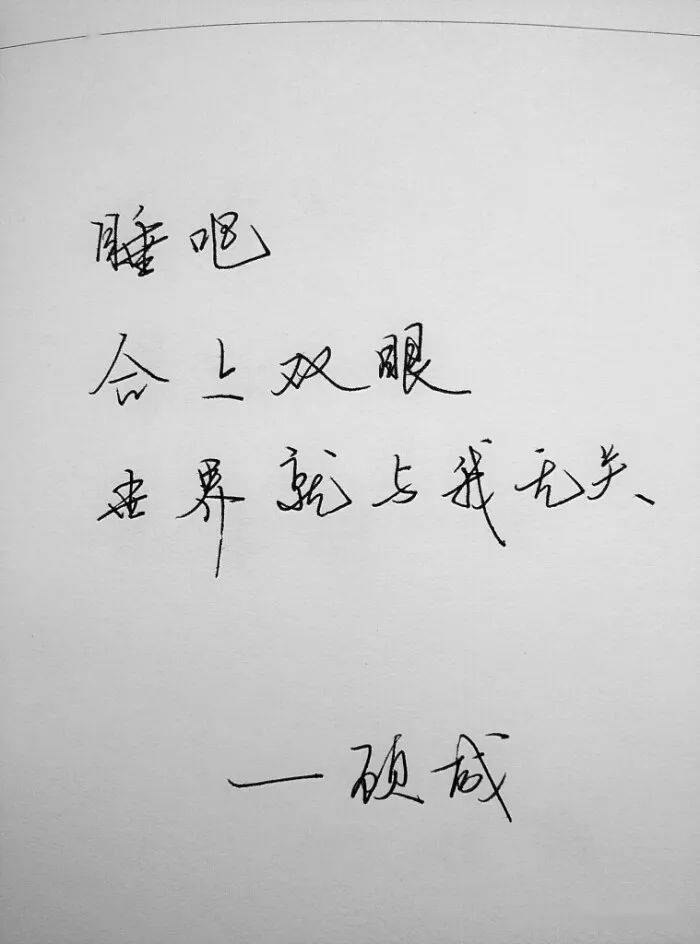 睡吧
合上双眼
世界就与我无关
——顾城